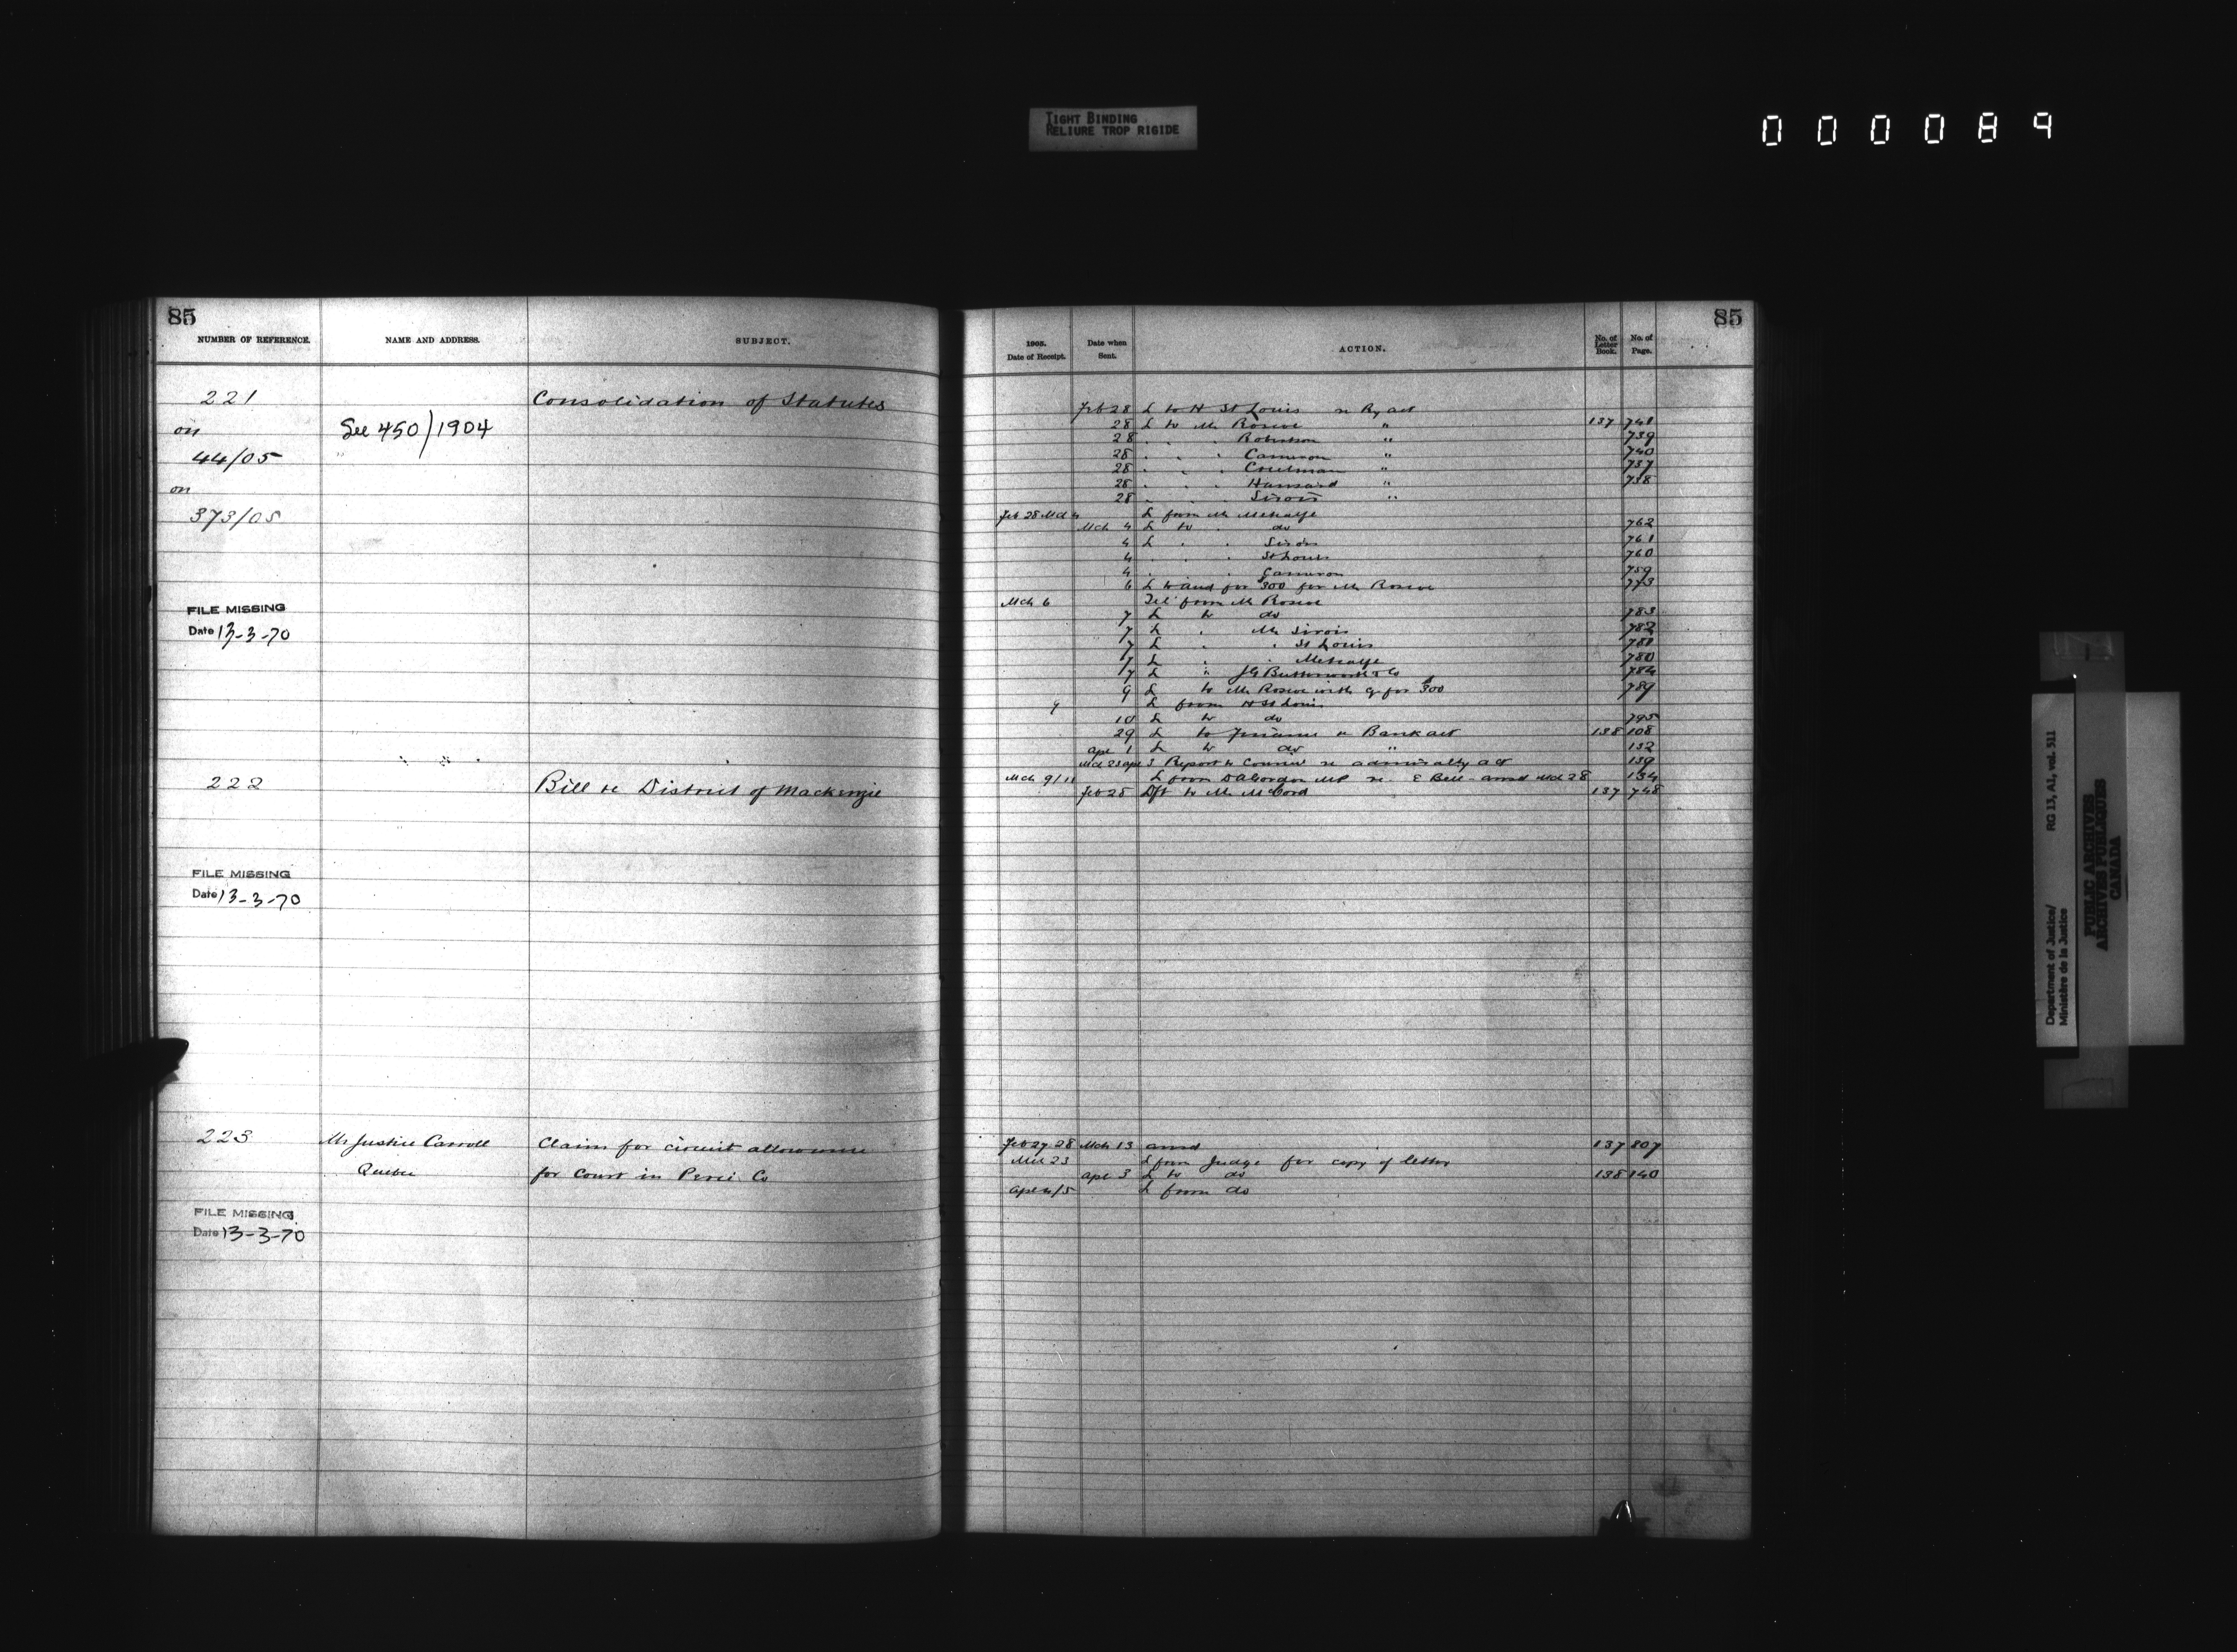 TIGHT BINDING
RELIURE TROP RIGIDE
000089
85
NUMBER OF REFERENCE.
NAME AND ADDRESS.
SUBJECT.
221
Consolidation of Statutes
on
See 450/1904
44/05
on
373/05
FILE MISSING
Date 13-3-70
222
Bill re District of Mackenzie
FILE MISSING
Date 13-3-70
223 Mr Justice Carroll Claim for circuit allowance
Quebec for Court in Percé Co
FILE MISSING
Date 13-3-70
85
1905.
Date of Receipt.
Date when
Sent.
ACTION.
No. of
Letter
Book.
No. of
Page.
Feb 28 L to H St Louis re Ry act
28 L to Mr Roscoe " 137 741
28 . . Robertson " 739
28 . . . Cameron " 740
28 . . . " 737
28 . . . Hansard " 738
28 . . . Sirois "
Feb 28 Mch 4 L from Mr Metcalfe
Mch 4 L to . do 762
4 L . . Sirois 761
4 . . St Louis 760
4 . . Cameron 759
6 L to aud for $300 for Mr Roscoe 773
Mch 6 Tel from Mr Roscoe
7 L to do 783
7 L . Mr Sirois 782
7 L . . St Louis 781
7 L . . Metcalfe 780
7 L " J G Butterworth & Co 784
9 L to Mr Roscoe with cq for $300 789
9 L from H St Louis
10 L to do 795
29 L to Finance re Bank act 138 108
Apl 1 L to do " 132
Mch 23 Apl 3 Report to Council re admiralty act 139
Mch 9/11 L from D A Gordon MP re . E Bell - ansd Mch 28 134
Feb 28 Dft to Mr McCord 137 748
Feb 27 28 Mch 13 ansd 137 807
Mch 23 L from Judge for copy of letter
Apl 3 L to do 138 140
Apl 4/5 L from do
Department of Justice/ RG 13, A1, vol. 511
Ministère de la Justice
PUBLIC ARCHIVES
ARCHIVES PUBLIQUES
CANADA